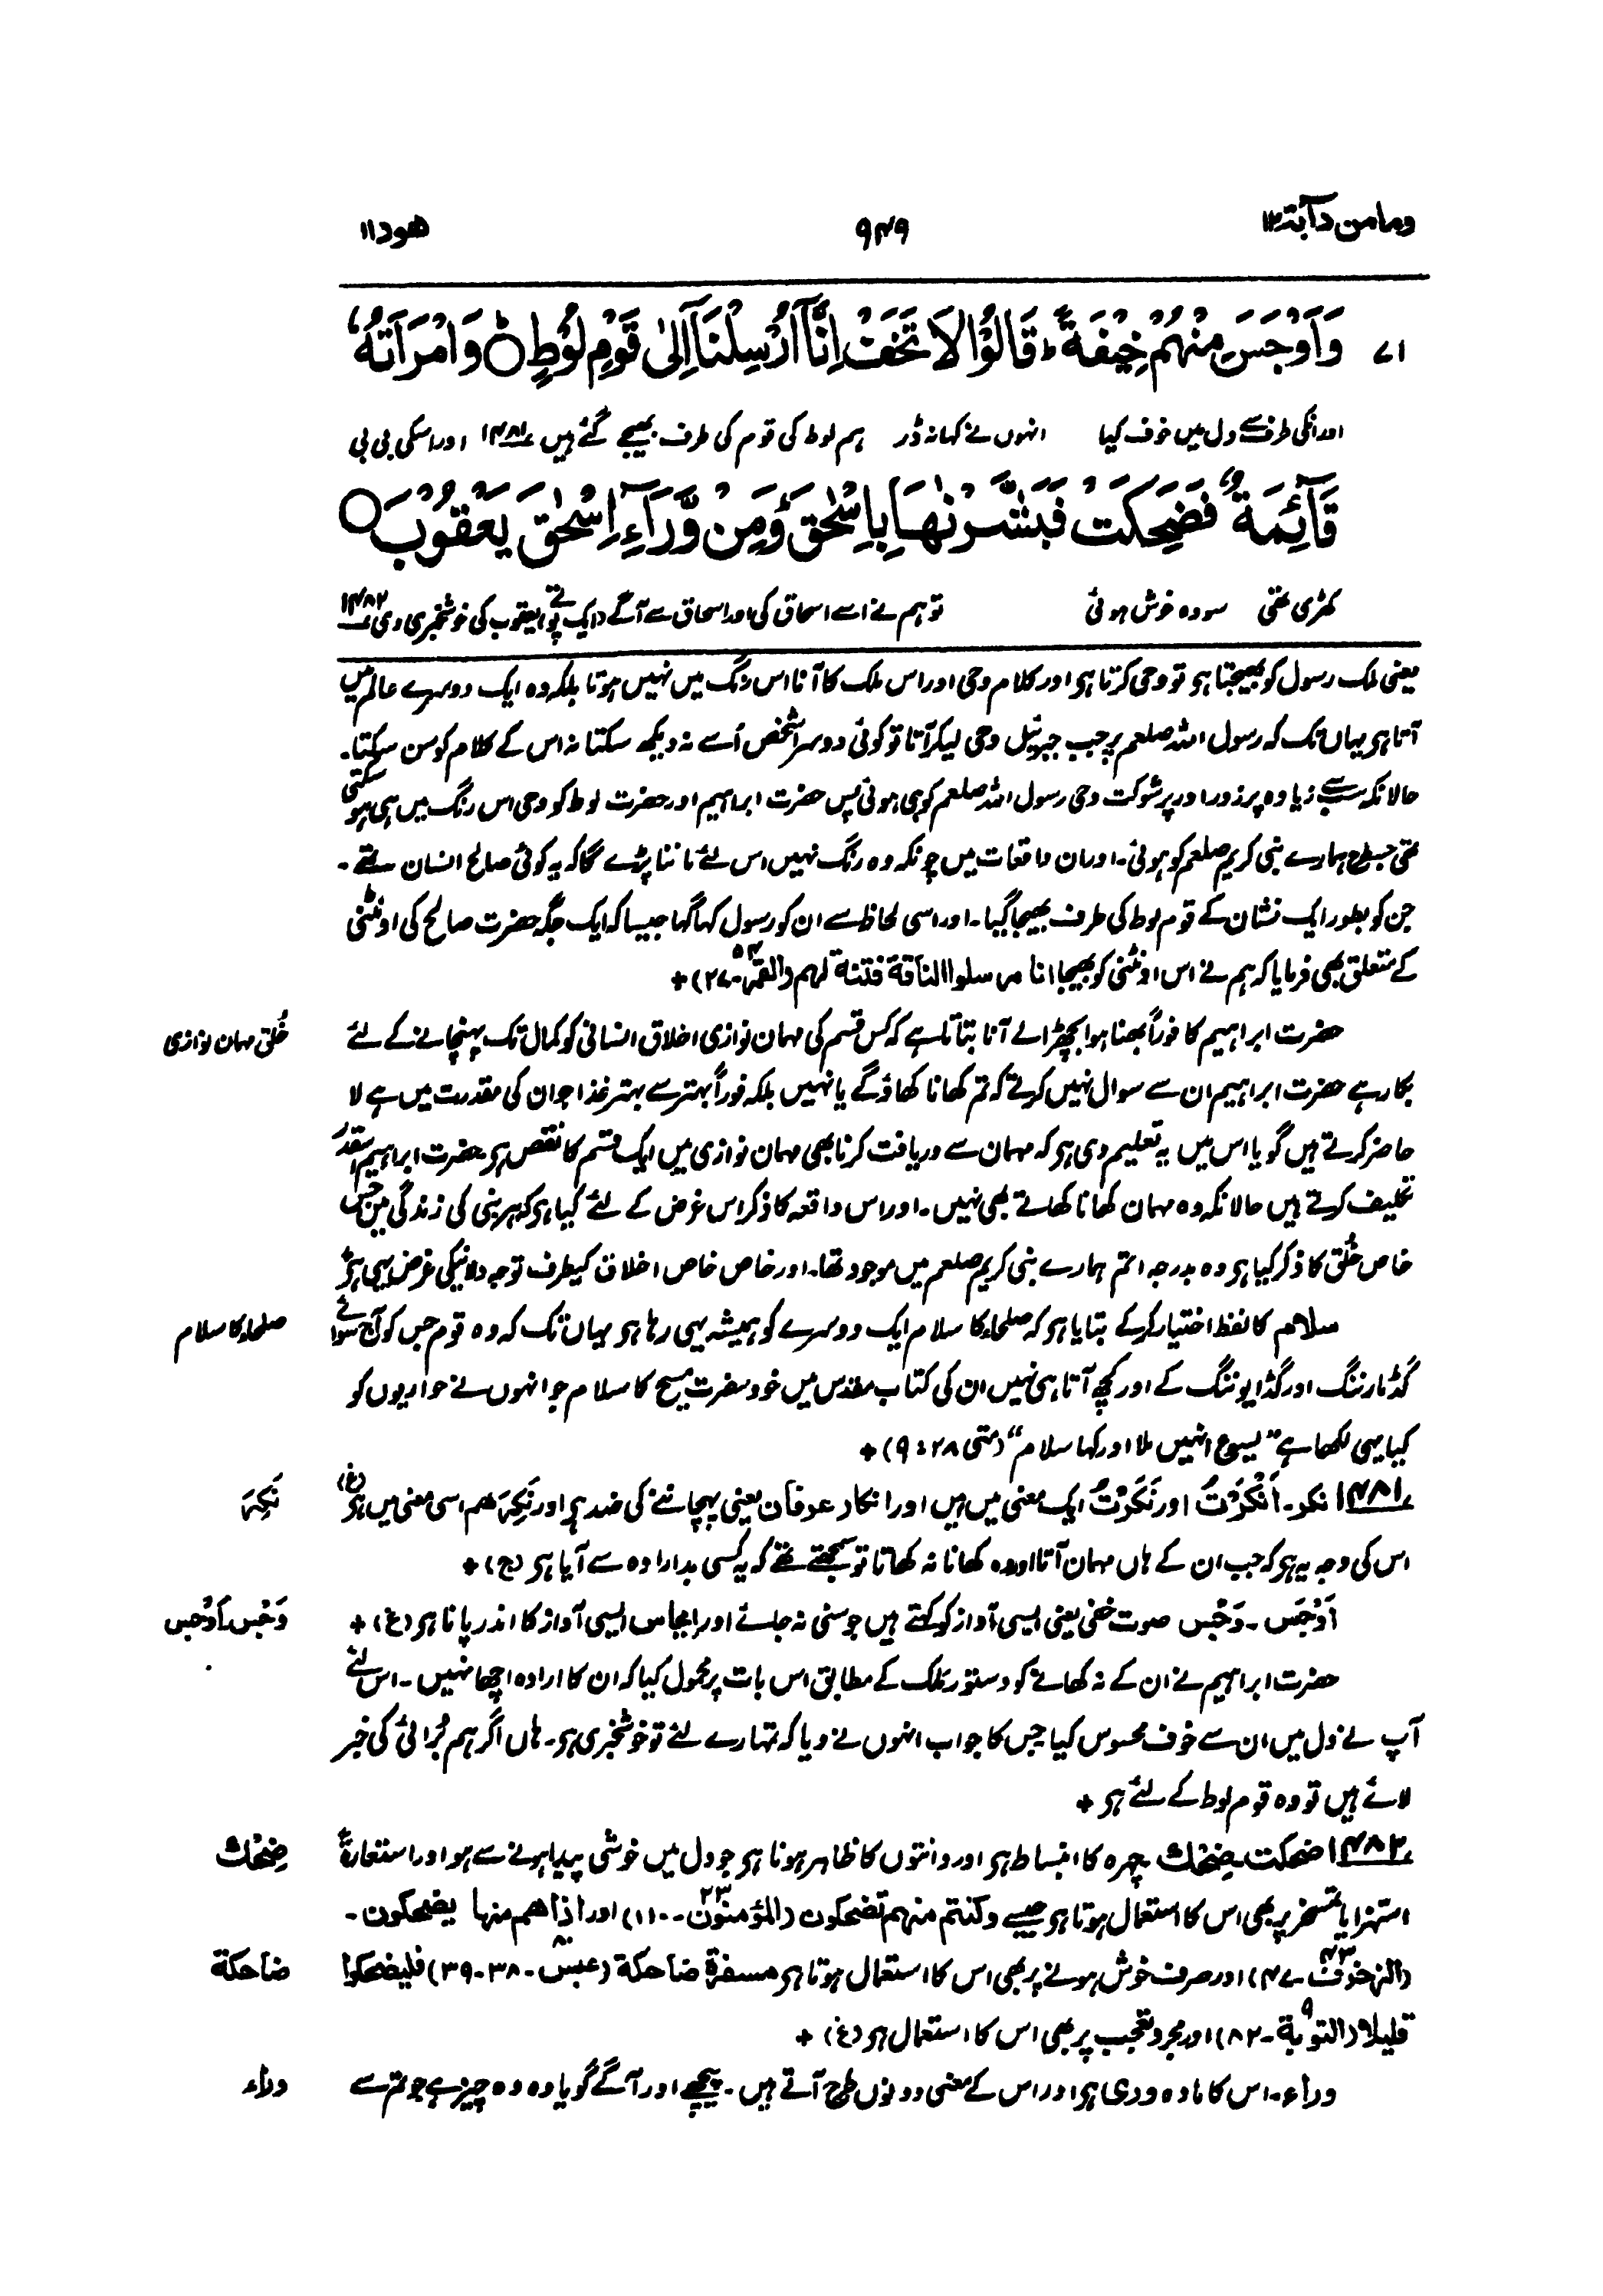 وما من دآبة ۱۲
۹۴۹
ھود ۱۱
۷۱ وَاَوْجَسَ مِنْهُمْ خِيْفَةً ؕ قَالُوْا لَا تَخَفْ اِنَّآ اُرْسِلْنَآ اِلٰى قَوْمِ لُوْطٍ ؕ وَامْرَاَتُهٗ
اور انکی طرف سے دل میں خوف کیا انہوں نے کہا نہ ڈر ہم لوط کی قوم کی طرف بھیجے گئے ہیں ۱۴۸۱ اور اسکی بی بی
قَآئِمَةٌ فَضَحِكَتْ فَبَشَّرْنٰهَا بِاِسْحٰقَ ۙ وَمِنْ وَّرَآءِ اِسْحٰقَ يَعْقُوْبَ
کھڑی تھی سو وہ خوش ہوئی تو ہم نے اسے اسحاق کی اور اسحاق سے آگے (ایک پوتے) یعقوب کی خوشخبری دی ۱۴۸۲
یعنی ملک رسول کو بھیجتا ہو تو وحی کرتا ہو اور کلام وحی اور اس ملک کا آنا اس رنگ میں نہیں ہوتا بلکہ وہ ایک دوسرے عالم میں
آتا ہو یہاں تک کہ رسول اللہ صلعم پر جب جبرئیل وحی لیکر آتا تو کوئی دوسرا شخص اُسے نہ دیکھ سکتا نہ اس کے کلام کو سن سکتا۔
حالانکہ سب سے زیادہ پر زور اور پر شوکت وحی رسول اللہ صلعم کو ہی ہوئی پس حضرت ابراہیم اور حضرت لوط کو وحی اس رنگ میں ہی ہو سکتی
تھی جسطرح ہمارے نبی کریم صلعم کو ہوئی۔ اور ان واقعات میں چونکہ وہ رنگ نہیں اس لئے ماننا پڑے گا کہ یہ کوئی صالح انسان تھے۔
جن کو بطور ایک نشان کے قوم لوط کی طرف بھیجا گیا۔ اور اسی لحاظ سے ان کو رسول کہا گیا جیسا کہ ایک جگہ حضرت صالح کی اونٹنی
کے متعلق بھی فرمایا کہ ہم نے اس اونٹنی کو بھیجا انا مرسلوا الناقة فتنة لهم (القمر ۵۴۔۲۷) +
حضرت ابراہیم کا فوراً بھنا ہوا بچھڑا لے آنا بتاتا ہے کہ کس قسم کی مہمان نوازی اخلاق انسانی کو کمال تک پہنچانے کے لئے
خُلق مہمان نوازی
بکار ہے حضرت ابراہیم ان سے سوال نہیں کرتے کہ تم کھانا کھاؤ گے یا نہیں بلکہ فوراً بہتر سے بہتر غذا جو ان کی مقدرت میں ہے لا
حاضر کرتے ہیں گویا اس میں یہ تعلیم دی ہو کہ مہمان سے دریافت کرنا بھی مہمان نوازی میں ایک قسم کا نقص ہو حضرت ابراہیم اسقدر
تکلیف کرتے ہیں حالانکہ وہ مہمان کھانا کھاتے بھی نہیں۔ اور اس واقعہ کا ذکر اس غرض کے لئے کیا ہو کہ ہر نبی کی زندگی میں جس
خاص خُلق کا ذکر کیا ہو وہ بدرجہ اتم ہمارے نبی کریم صلعم میں موجود تھا۔ اور خاص خاص اخلاق کیطرف توجہ دلانیکی غرض یہی ہو
سلام کا لفظ اختیار کر کے بتایا ہو کہ صلحاء کا سلام ایک دوسرے کو ہمیشہ یہی رہا ہو یہاں تک کہ وہ قوم جس کو آج سوائے
صلحاء کا سلام
گڈ مارننگ اور گڈ ایوننگ کے اور کچھ آتا ہی نہیں ان کی کتاب مقدس میں خود حضرت مسیح کا سلام جو انہوں نے حواریوں کو
کیا یہی لکھا ہے "یسوع انہیں ملا اور کہا سلام" (متی ۲۸ : ۹) +
۱۴۸۱ نکر۔ اَنْکَرْتُ اور نَکَرْتُ ایک معنی میں ہیں اور انکار عرفان یعنی پہچاننے کی ضد ہو اور نَکِرَهم اسی معنی میں ہو (غ)
نَکِرَ
اس کی وجہ یہ ہو کہ جب ان کے ہاں مہمان آتا اور وہ کھانا نہ کھاتا تو سمجھتے تھے کہ یہ کسی بد ارادہ سے آیا ہو (ج) +
اَوْجَس۔ وَجْس صوت خفی یعنی ایسی آواز کو کہتے ہیں جو سنی نہ جائے اور ایجاس ایسی آواز کا اندر پانا ہو (غ) +
وَجْس۔ اَوْجَس
حضرت ابراہیم نے ان کے نہ کھانے کو دستور ملک کے مطابق اس بات پر محمول کیا کہ ان کا ارادہ اچھا نہیں۔ اس لئے
آپ نے دل میں ان سے خوف محسوس کیا جس کا جواب انہوں نے دیا کہ تمہارے لئے تو خوشخبری ہو۔ ہاں اگر ہم بُرائی کی خبر
لائے ہیں تو وہ قوم لوط کے لئے ہو +
۱۴۸۲ ضحکت۔ ضِحْك چہرہ کا انبساط ہو اور دانتوں کا ظاہر ہونا ہو جو دل میں خوشی پیدا ہونے سے ہو اور استعارۃً
ضِحْك
استہزا یا تمسخر پر بھی اس کا استعمال ہوتا ہو جیسے وکنتم منہم تضحکون (المؤمنون ۲۳۔۱۱۰) اور اذا هم منها يضحکون۔
(الزخرف ۴۳۔۴۷) اور صرف خوش ہونے پر بھی اس کا استعمال ہوتا ہو مسفرة ضاحکة (عبس ۸۰۔۳۸۔۳۹) فلیضحکوا
ضاحکة
قلیلا (التوبة ۹۔۸۲) اور مجرد تعجب پر بھی اس کا استعمال ہو (غ) +
وراء۔ اس کا مادہ وری ہو اور اس کے معنی دونوں طرح آتے ہیں۔ پیچھے اور آگے گویا وہ وہ چیز ہے جو تم سے
وراء